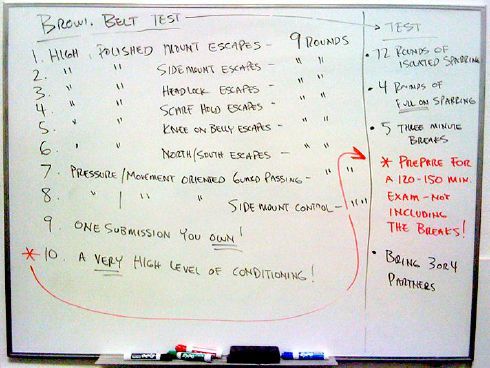 BROWN BELT TEST
1. HIGH, POLISHED MOUNT ESCAPES - 9 ROUNDS
2. " " SIDEMOUNT ESCAPES - " "
3. " " HEADLOCK ESCAPES - " "
4. " " SCARF HOLD ESCAPES - " "
5. " " KNEE ON BELLY ESCAPES - " "
6. " " NORTH/SOUTH ESCAPES - " "
7. PRESSURE/MOVEMENT ORIENTED GUARD PASSING - " "
8. " / " " SIDE MOUNT CONTROL - " "
9. ONE SUBMISSION YOU OWN!
* 10. A VERY HIGH LEVEL OF CONDITIONING!
TEST
• 72 ROUNDS OF
ISOLATED SPARRING
• 4 ROUNDS OF
FULL ON SPARRING
• 5 THREE MINUTE
BREAKS
* PREPARE FOR
A 120-150 MIN.
EXAM - NOT
INCLUDING
THE BREAKS!
• BRING 3 OR 4
PARTNERS